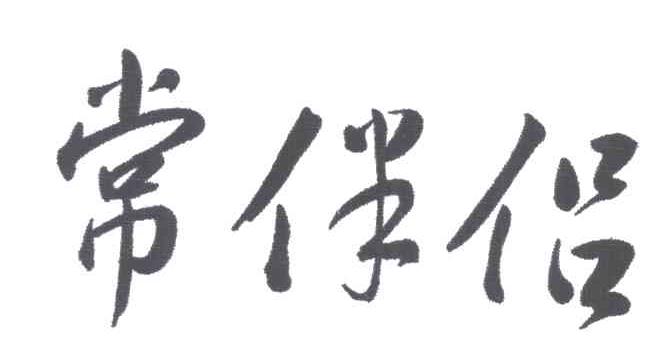 常伴侣